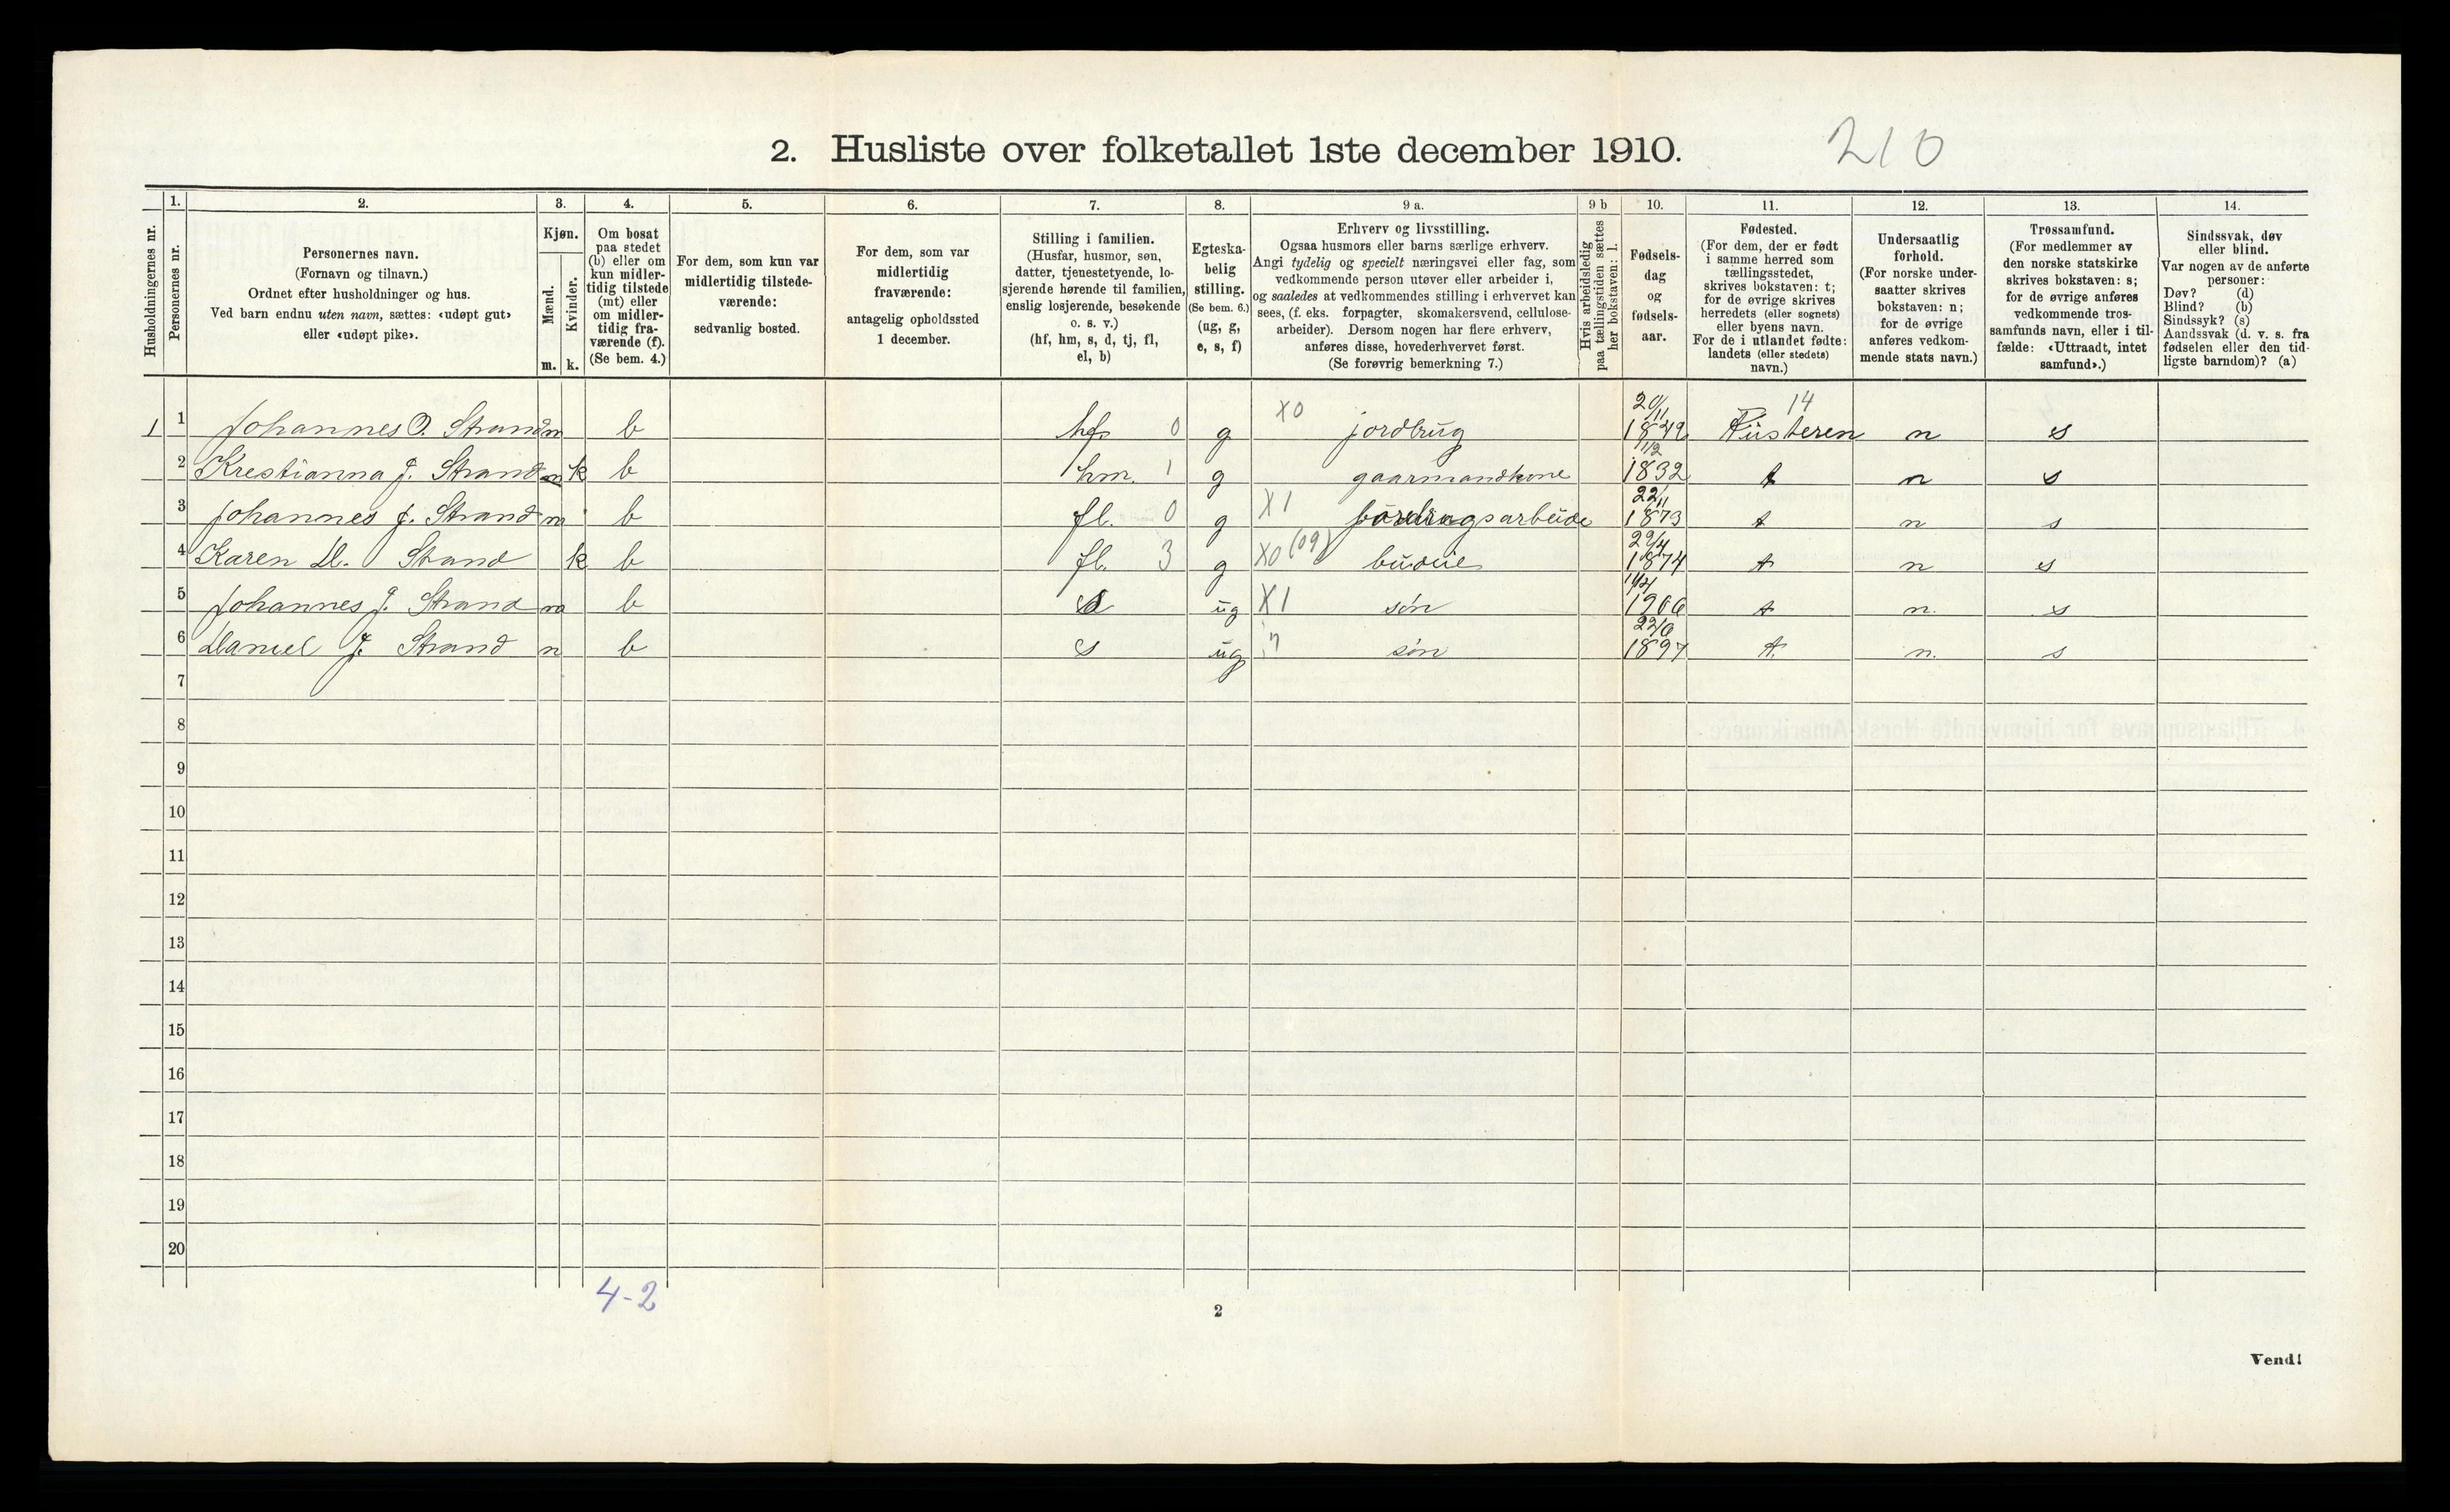 210
2. Husliste over folketallet 1ste december 1910.
Husholdningernes nr.
1. Personernes nr.
2. Personernes navn. (Fornavn og tilnavn.) Ordnet efter husholdninger og hus. Ved barn endnu uten navn, sættes: «udøpt gut» eller «udøpt pike».
3. Kjøn. Mænd. m. Kvinder. k.
4. Om bosat paa stedet (b) eller om kun midlertidig tilstede (mt) eller om midlertidig fraværende (f). (Se bem. 4.)
5. For dem, som kun var midlertidig tilstedeværende: sedvanlig bosted.
6. For dem, som var midlertidig fraværende: antagelig opholdssted 1 december.
7. Stilling i familien. (Husfar, husmor, søn, datter, tjenestetyende, losjerende hørende til familien, enslig losjerende, besøkende o. s. v.) (hf, hm, s, d, tj, fl, el, b)
8. Egteskabelig stilling. (Se bem. 6.) (ug, g, e, s, f)
9 a. Erhverv og livsstilling. Ogsaa husmors eller barns særlige erhverv. Angi tydelig og specielt næringsvei eller fag, som vedkommende person utøver eller arbeider i, og saaledes at vedkommendes stilling i erhvervet kan sees, (f. eks. forpagter, skomakersvend, cellulosearbeider). Dersom nogen har flere erhverv, anføres disse, hovederhvervet først. (Se forøvrig bemerkning 7.)
9 b Hvis arbeidsledig paa tællingstiden sættes her bokstaven: l.
10. Fødselsdag og fødselsaar.
11. Fødested. (For dem, der er født i samme herred som tællingsstedet, skrives bokstaven: t; for de øvrige skrives herredets (eller sognets) eller byens navn. For de i utlandet fødte: landets (eller stedets) navn.)
12. Undersaatlig forhold. (For norske undersaatter skrives bokstaven: n; for de øvrige anføres vedkommende stats navn.)
13. Trossamfund. (For medlemmer av den norske statskirke skrives bokstaven: s; for de øvrige anføres vedkommende trossamfunds navn, eller i tilfælde: «Uttraadt, intet samfund».)
14. Sindssvak, døv eller blind. Var nogen av de anførte personer: Døv? (d) Blind? (b) Sindssyk? (s) Aandssvak (d. v. s. fra fødselen eller den tidligste barndom)? (a)
1 1 Johannes O. Strand m b hf 0 g X0 jordbrug 20/11 1849 14 Tusteren n s
2 Krestianna J. Strand m k b hm. 1 g gaarmandkone 1/12 1832 t n s
3 Johannes J. Strand m b fl. 0 g X1 22/11 1873 t n s
4 Karen D. Stand k b fl. 3 g X0 (09) budeie 29/4 1874 t n s
5 Johannes J. Strand m b s ug X1 søn 1906 t n. s
6 Daniel J. Strand m b s ug " søn 22/6 1897 t. n. s
7
8
9
10
11
12
13
14
15
16
17
18
19
20
4-2
2
Vend!